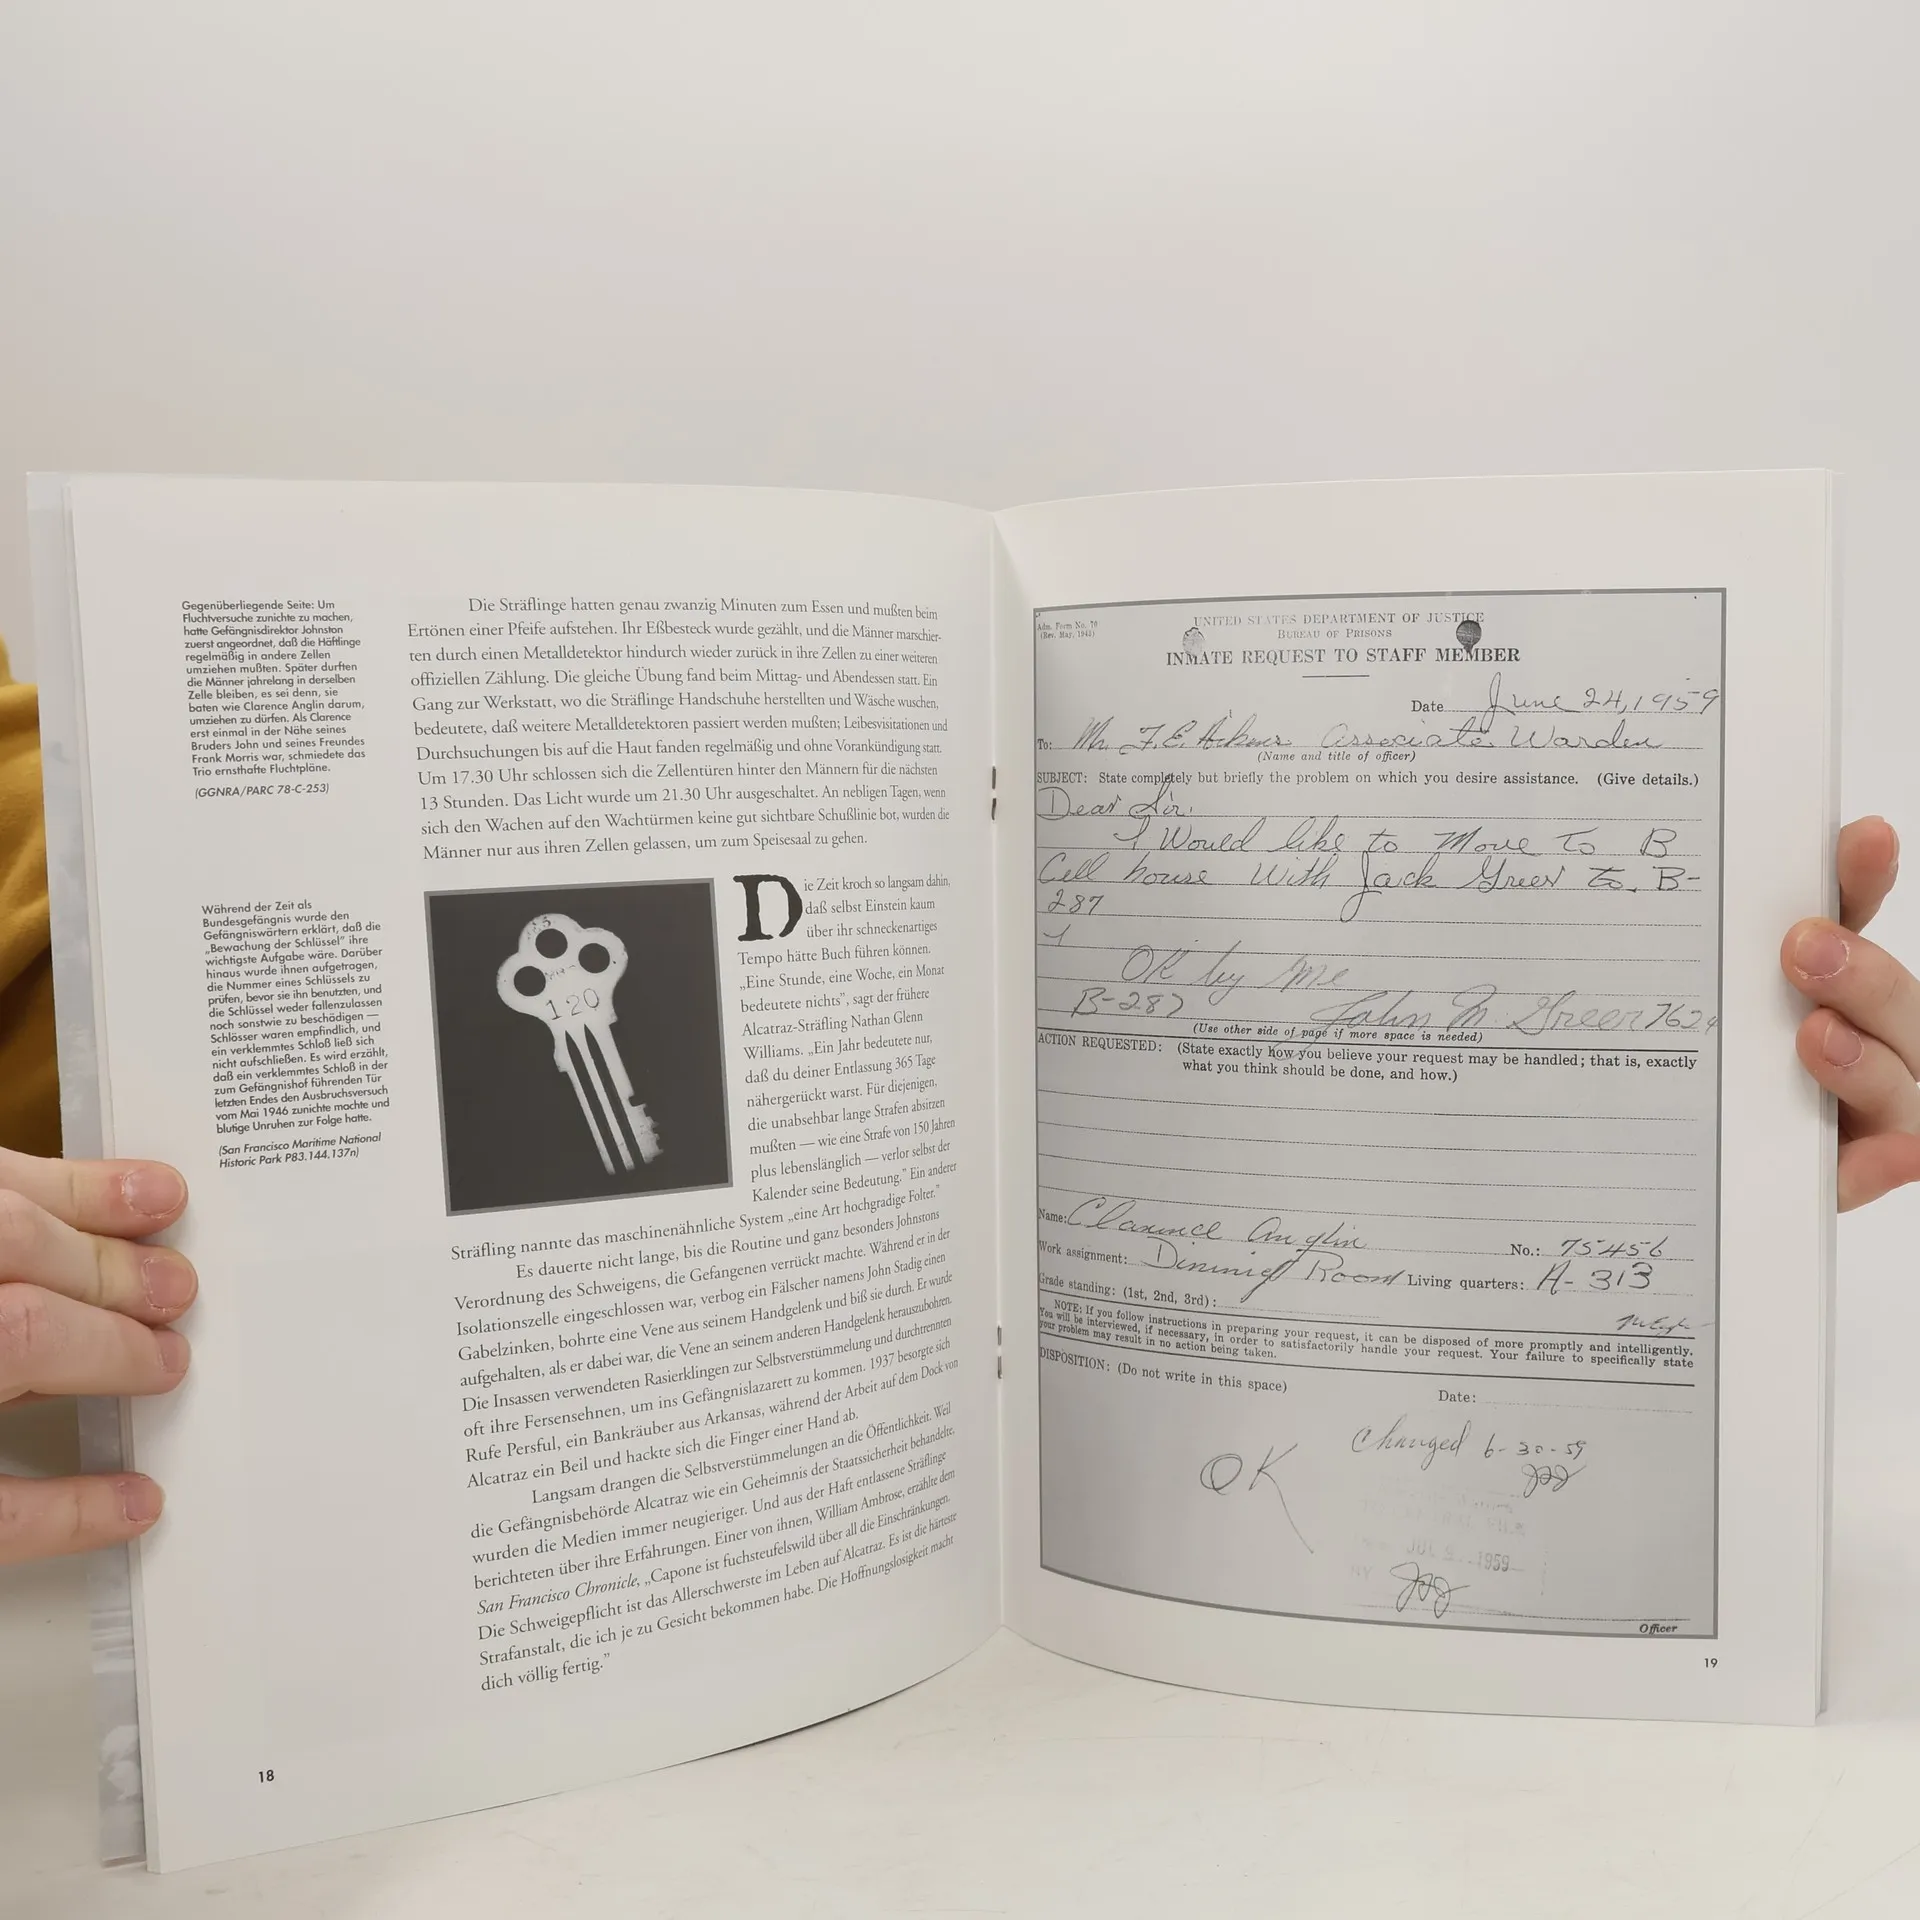 Gegenüberliegende Seite: Um
Fluchtversuche zunichte zu machen,
hatte Gefängnisdirektor Johnston
zuerst angeordnet, daß die Häftlinge
regelmäßig in andere Zellen
umziehen mußten. Später durften
die Männer jahrelang in derselben
Zelle bleiben, es sei denn, sie
baten wie Clarence Anglin darum,
umziehen zu dürfen. Als Clarence
erst einmal in der Nähe seines
Bruders John und seines Freundes
Frank Morris war, schmiedete das
Trio ernsthafte Fluchtpläne.
(GGNRA/PARC 78-C-253)
Während der Zeit als
Bundesgefängnis wurde den
Gefängniswärtern erklärt, daß die
„Bewachung der Schlüssel" ihre
wichtigste Aufgabe wäre. Darüber
hinaus wurde ihnen aufgetragen,
die Nummer eines Schlüssels zu
prüfen, bevor sie ihn benutzten, und
die Schlüssel weder fallenzulassen
noch sonstwie zu beschädigen —
Schlösser waren empfindlich, und
ein verklemmtes Schloß ließ sich
nicht aufschließen. Es wird erzählt,
daß ein verklemmtes Schloß in der
zum Gefängnishof führenden Tür
letzten Endes den Ausbruchsversuch
vom Mai 1946 zunichte machte und
blutige Unruhen zur Folge hatte.
(San Francisco Maritime National
Historic Park P83.144.137n)
Die Sträflinge hatten genau zwanzig Minuten zum Essen und mußten beim
Ertönen einer Pfeife aufstehen. Ihr Eßbesteck wurde gezählt, und die Männer marschier-
ten durch einen Metalldetektor hindurch wieder zurück in ihre Zellen zu einer weiteren
offiziellen Zählung. Die gleiche Übung fand beim Mittag- und Abendessen statt. Ein
Gang zur Werkstatt, wo die Sträflinge Handschuhe herstellten und Wäsche wuschen,
bedeutete, daß weitere Metalldetektoren passiert werden mußten; Leibesvisitationen und
Durchsuchungen bis auf die Haut fanden regelmäßig und ohne Vorankündigung statt.
Um 17.30 Uhr schlossen sich die Zellentüren hinter den Männern für die nächsten
13 Stunden. Das Licht wurde um 21.30 Uhr ausgeschaltet. An nebligen Tagen, wenn
sich den Wachen auf den Wachtürmen keine gut sichtbare Schußlinie bot, wurden die
Männer nur aus ihren Zellen gelassen, um zum Speisesaal zu gehen.
120
Die Zeit kroch so langsam dahin,
daß selbst Einstein kaum
über ihr schneckenartiges
Tempo hätte Buch führen können.
„Eine Stunde, eine Woche, ein Monat
bedeutete nichts", sagt der frühere
Alcatraz-Sträfling Nathan Glenn
Williams. „Ein Jahr bedeutete nur,
daß du deiner Entlassung 365 Tage
nähergerückt warst. Für diejenigen,
die unabsehbar lange Strafen absitzen
mußten — wie eine Strafe von 150 Jahren
plus lebenslänglich — verlor selbst der
Kalender seine Bedeutung." Ein anderer
Sträfling nannte das maschinenähnliche System „eine Art hochgradige Folter."
Es dauerte nicht lange, bis die Routine und ganz besonders Johnstons
Verordnung des Schweigens, die Gefangenen verrückt machte. Während er in der
Isolationszelle eingeschlossen war, verbog ein Fälscher namens John Stadig einen
Gabelzinken, bohrte eine Vene aus seinem Handgelenk und biß sie durch. Er wurde
aufgehalten, als er dabei war, die Vene an seinem anderen Handgelenk herauszubohren.
Die Insassen verwendeten Rasierklingen zur Selbstverstümmelung und durchtrennten
oft ihre Fersensehnen, um ins Gefängnislazarett zu kommen. 1937 besorgte sich
Rufe Persful, ein Bankräuber aus Arkansas, während der Arbeit auf dem Dock von
Alcatraz ein Beil und hackte sich die Finger einer Hand ab.
Langsam drangen die Selbstverstümmelungen an die Öffentlichkeit. Weil
die Gefängnisbehörde Alcatraz wie ein Geheimnis der Staatssicherheit behandelte,
wurden die Medien immer neugieriger. Und aus der Haft entlassene Sträflinge
berichteten über ihre Erfahrungen. Einer von ihnen, William Ambrose, erzählte dem
San Francisco Chronicle, „Capone ist fuchsteufelswild über all die Einschränkungen.
Die Schweigepflicht ist das Allerschwerste im Leben auf Alcatraz. Es ist die härteste
Strafanstalt, die ich je zu Gesicht bekommen habe. Die Hoffnungslosigkeit macht
dich völlig fertig."
18
Adm. Form No. 70
(Rev. May, 1942)
UNITED STATES DEPARTMENT OF JUSTICE
BUREAU OF PRISONS
INMATE REQUEST TO STAFF MEMBER
Date June 24, 1959
To: Mr. F.E. Associate Warden
(Name and title of officer)
SUBJECT: State completely but briefly the problem on which you desire assistance. (Give details.)
Dear Sir.
I Would like to Move To B
Cell house With Jack Green to. B-
287
OK by Me
B-287 John M. Green 7624
(Use other side of page if more space is needed)
ACTION REQUESTED: (State exactly how you believe your request may be handled; that is, exactly
what you think should be done, and how.)
Name: Clarence Anglin No.: 75456
Work assignment: Dining Room Living quarters: A-313
Grade standing: (1st, 2nd, 3rd):
NOTE: If you follow instructions in preparing your request, it can be disposed of more promptly and intelligently.
You will be interviewed, if necessary, in order to satisfactorily handle your request. Your failure to specifically state
your problem may result in no action being taken.
DISPOSITION: (Do not write in this space)
Date:
Changed 6-30-59
OK
1959
Officer
19